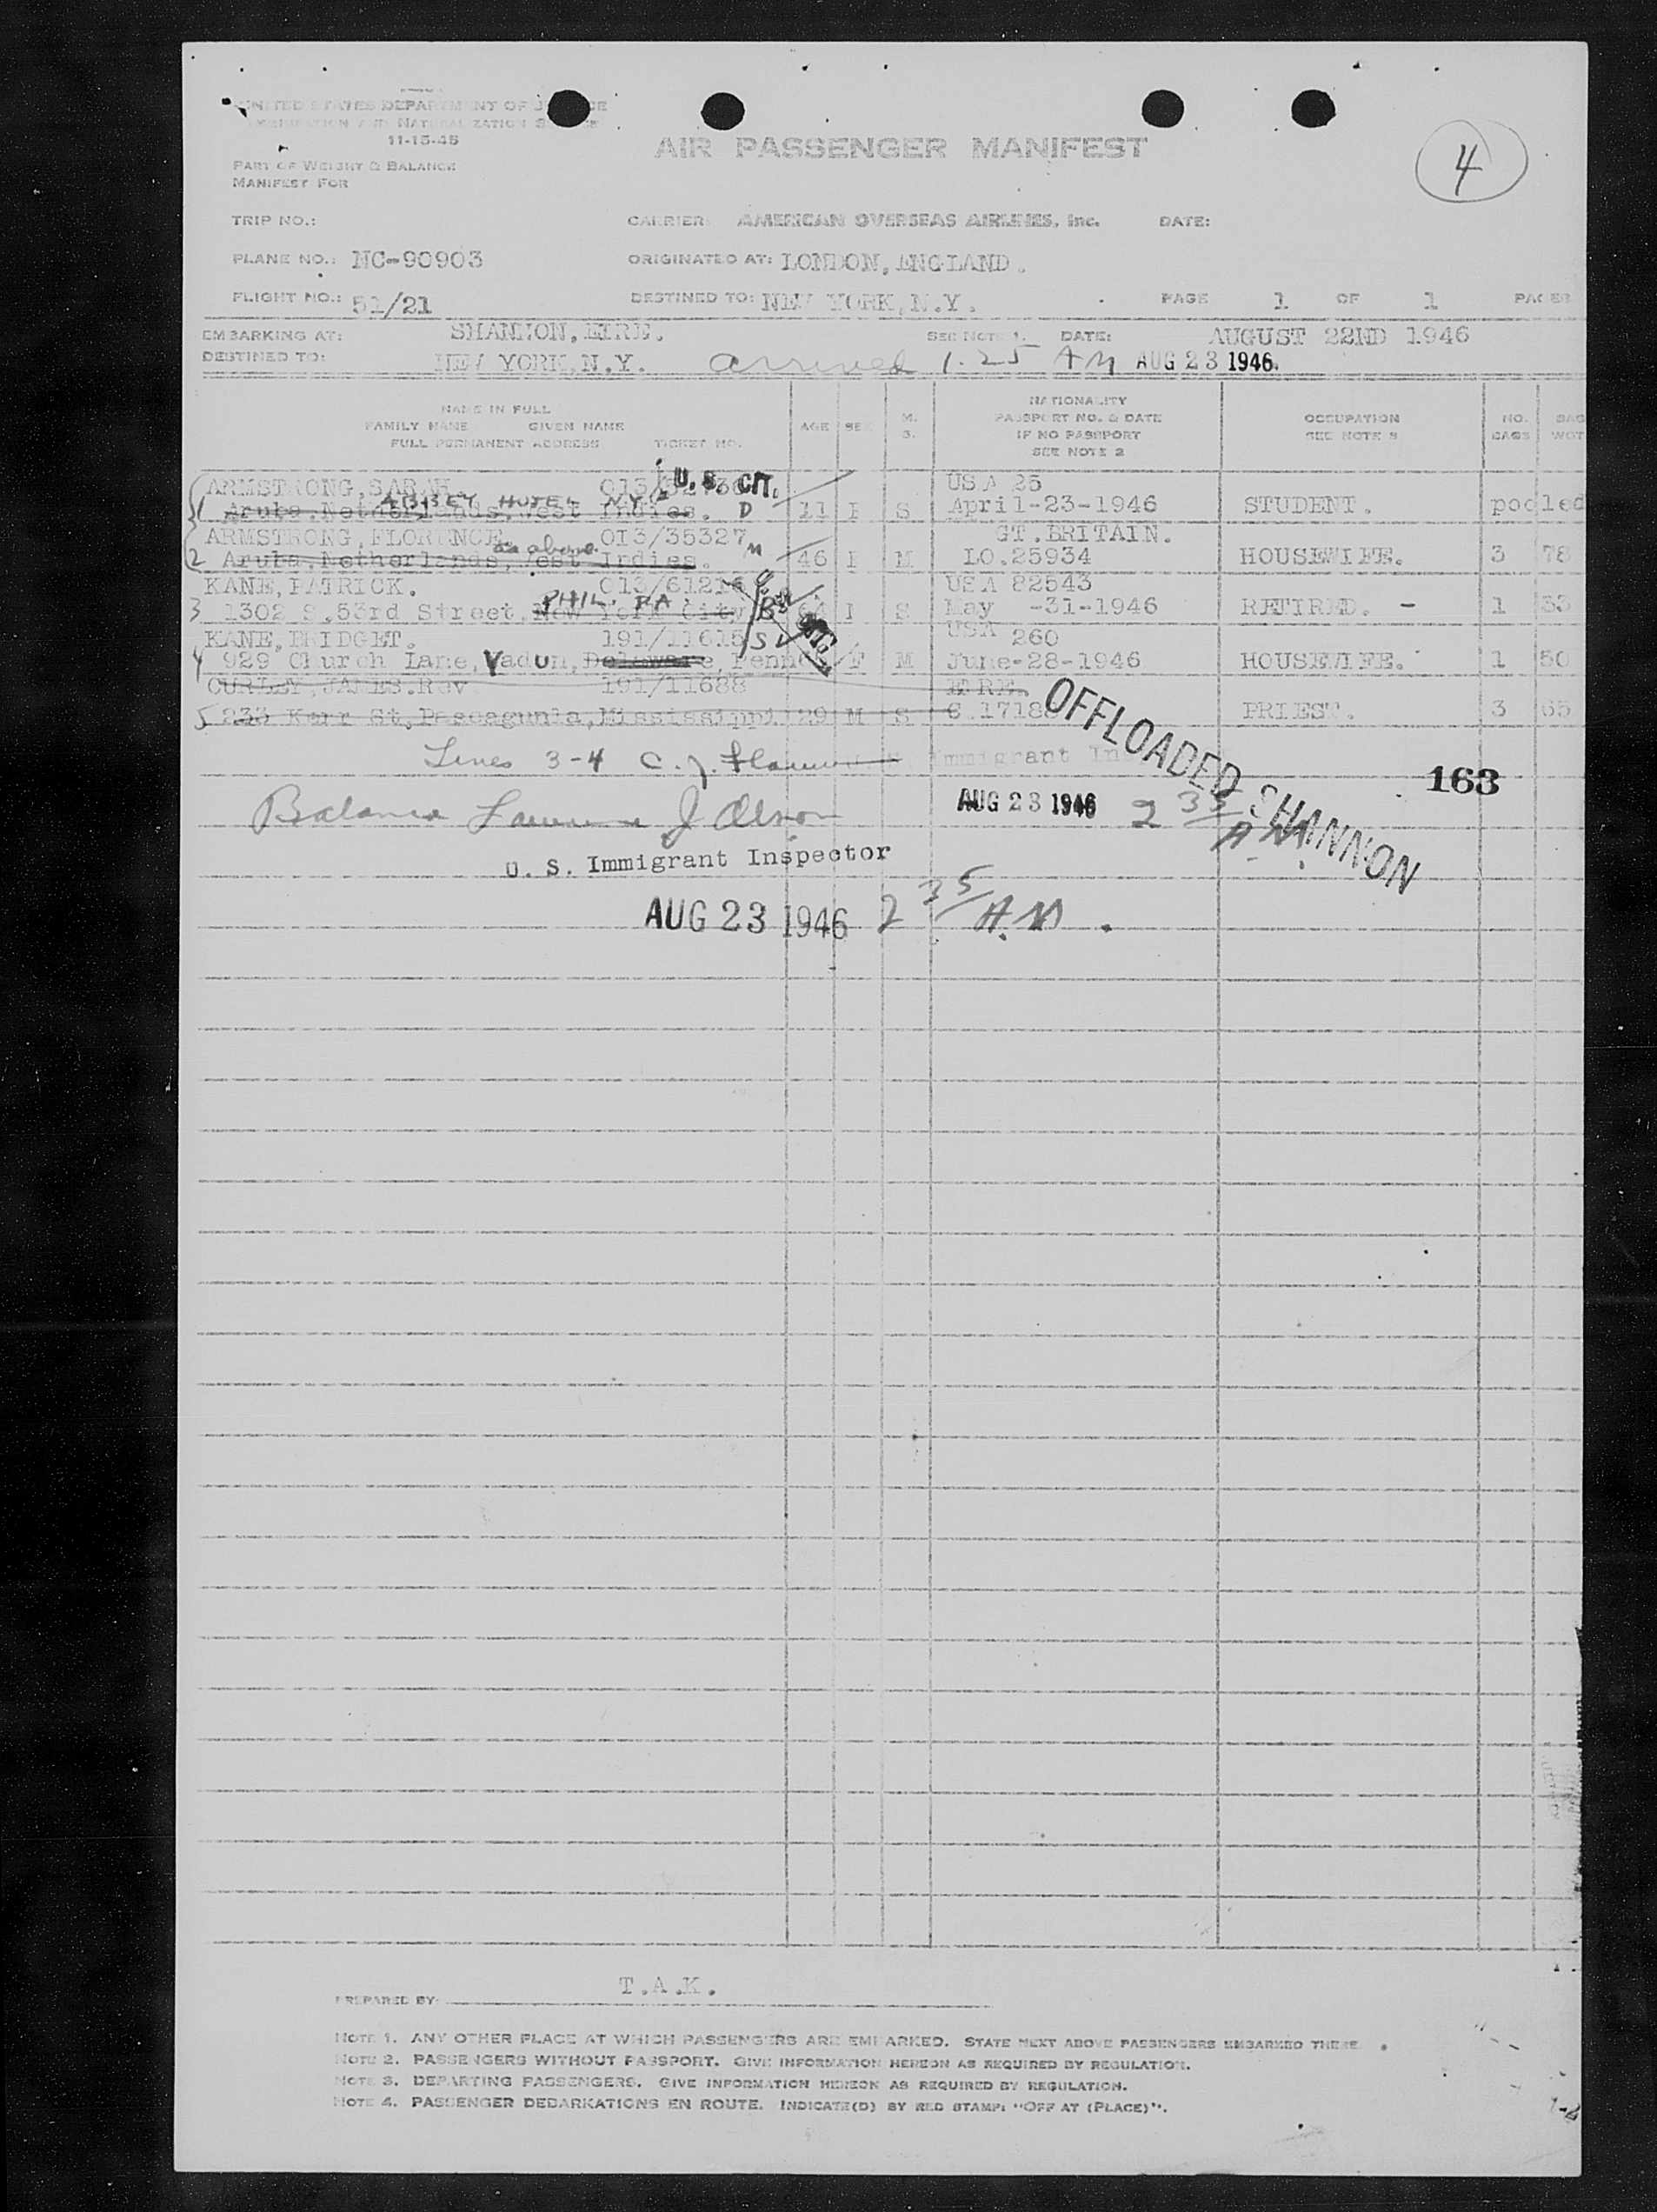 UNITED STATES DEPARTMENT OF JUSTICE
IMMIGRATION AND NATURALIZATION SERVICE
11-15-45
AIR PASSENGER MANIFEST
4
PART OF WEIGHT & BALANCE
MANIFEST FOR
TRIP NO.: CARRIER: AMERICAN OVERSEAS AIRLINES, Inc. DATE:
PLANE NO.: NC-90903 ORIGINATED AT: LONDON, ENGLAND.
FLIGHT NO.: 51/21 DESTINED TO: NEW YORK, N.Y. PAGE 1 OF 1 PAGES
EMBARKING AT: SHANNON, EIRE. SEE NOTE 1. DATE: AUGUST 22ND 1946
DESTINED TO: NEW YORK, N.Y. arrived 1.25 AM AUG 23 1946.
NAME IN FULL
FAMILY NAME GIVEN NAME
FULL PERMANENT ADDRESS TICKET NO.
AGE SEX M. S.
NATIONALITY
PASSPORT NO. & DATE
IF NO PASSPORT
SEE NOTE 2
OCCUPATION
SEE NOTE 3
NO. BAGS
BAG WGT
ARMSTRONG, SARAH U.S. CIT. USA 25
ABBEY HOTEL N.Y.
1 Aruba, Netherlands, West Indies. D 11 F S April-23-1946 STUDENT. pooled
ARMSTRONG, FLORENCE. OI3/35327 GT.BRITAIN.
as above. M
2 Aruba, Netherlands, West Indies. 46 F M LO.25934 HOUSEWIFE. 3 78
KANE, PATRICK. 013/61216 USA 82543
PHIL. PA.
3 1302 S.53rd Street, New York City 64 S May -31-1946 RETIRED. - 1 33
KANE, BRIDGET. 191/11615 USA 260
4 929 Church Lane, Yadon, Delaware, Penn F M June-28-1946 HOUSEWIFE. 1 50
CURLEY, JAMES. Rev 191/11688 EIRE.
5 233 Kerr St, Pascagunla, Mississippi 29 M S C.17188 PRIEST. 3 65
OFFLOADED SHANNON
Lines 3-4 C. J. Immigrant
163
Balance J Olson AUG 23 1946 2 35 A M
U. S. Immigrant Inspector
AUG 23 1946 2 35 A.M.
T.A.K.
PREPARED BY:
NOTE 1. ANY OTHER PLACE AT WHICH PASSENGERS ARE EMBARKED. STATE NEXT ABOVE PASSENGERS EMBARKED THERE.
NOTE 2. PASSENGERS WITHOUT PASSPORT. GIVE INFORMATION HEREON AS REQUIRED BY REGULATION.
NOTE 3. DEPARTING PASSENGERS. GIVE INFORMATION HEREON AS REQUIRED BY REGULATION.
NOTE 4. PASSENGER DEBARKATIONS EN ROUTE. INDICATE(D) BY RED STAMP: "OFF AT (PLACE)".